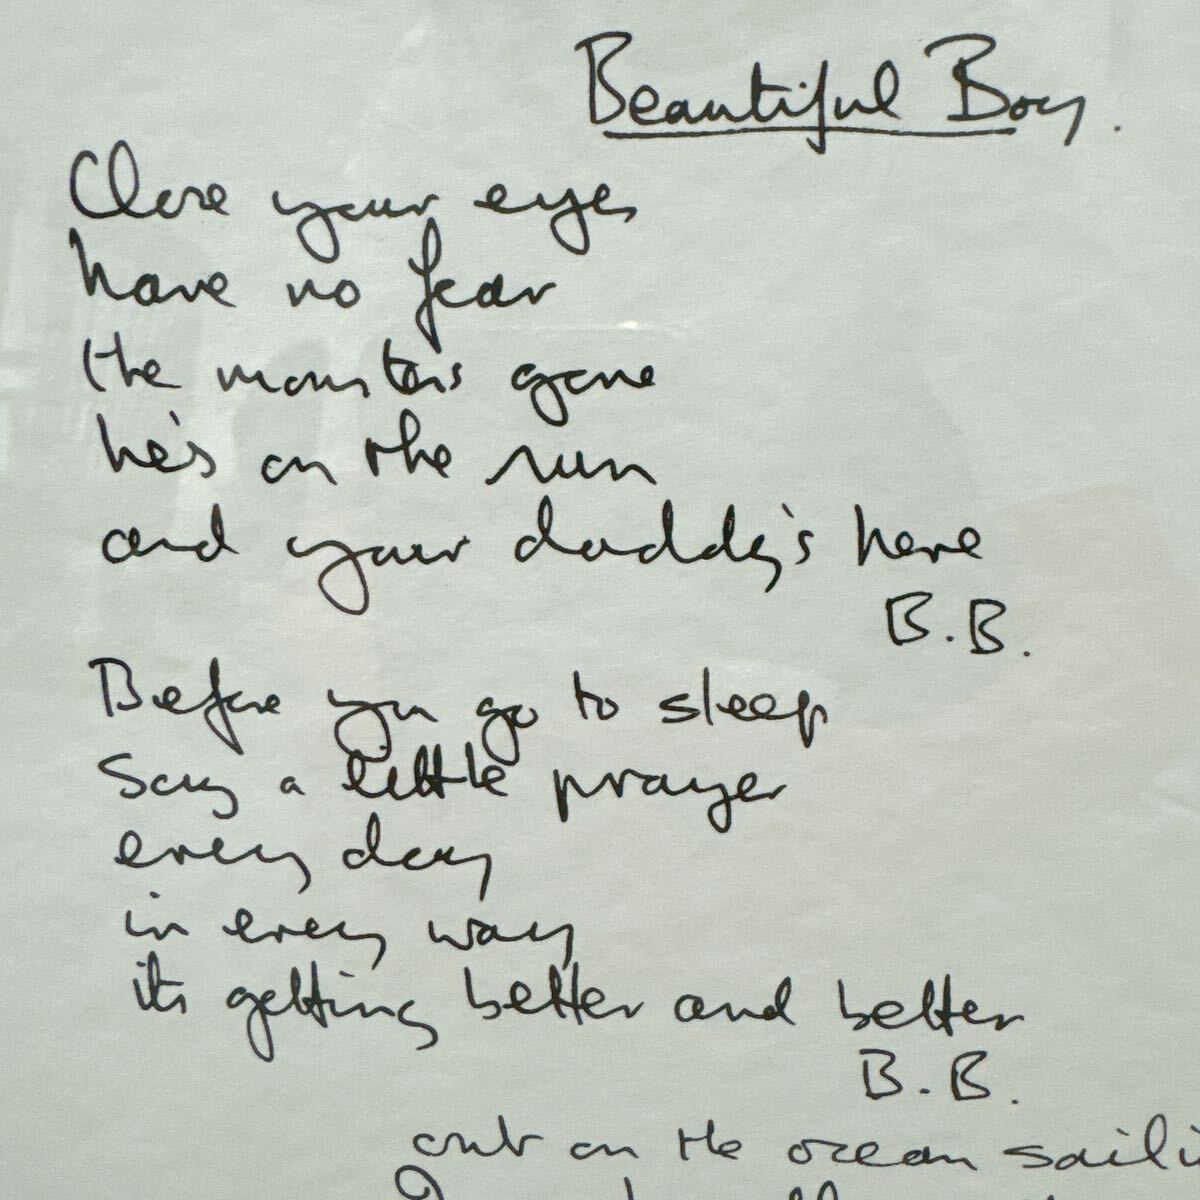 Beautiful Boy.
Close your eyes
have no fear
the monsters gone
he's on the run
and your daddy's here
B.B.
Before you go to sleep
Say a little prayer
every day
in every way
its getting better and better
B.B.
out on the ocean saili